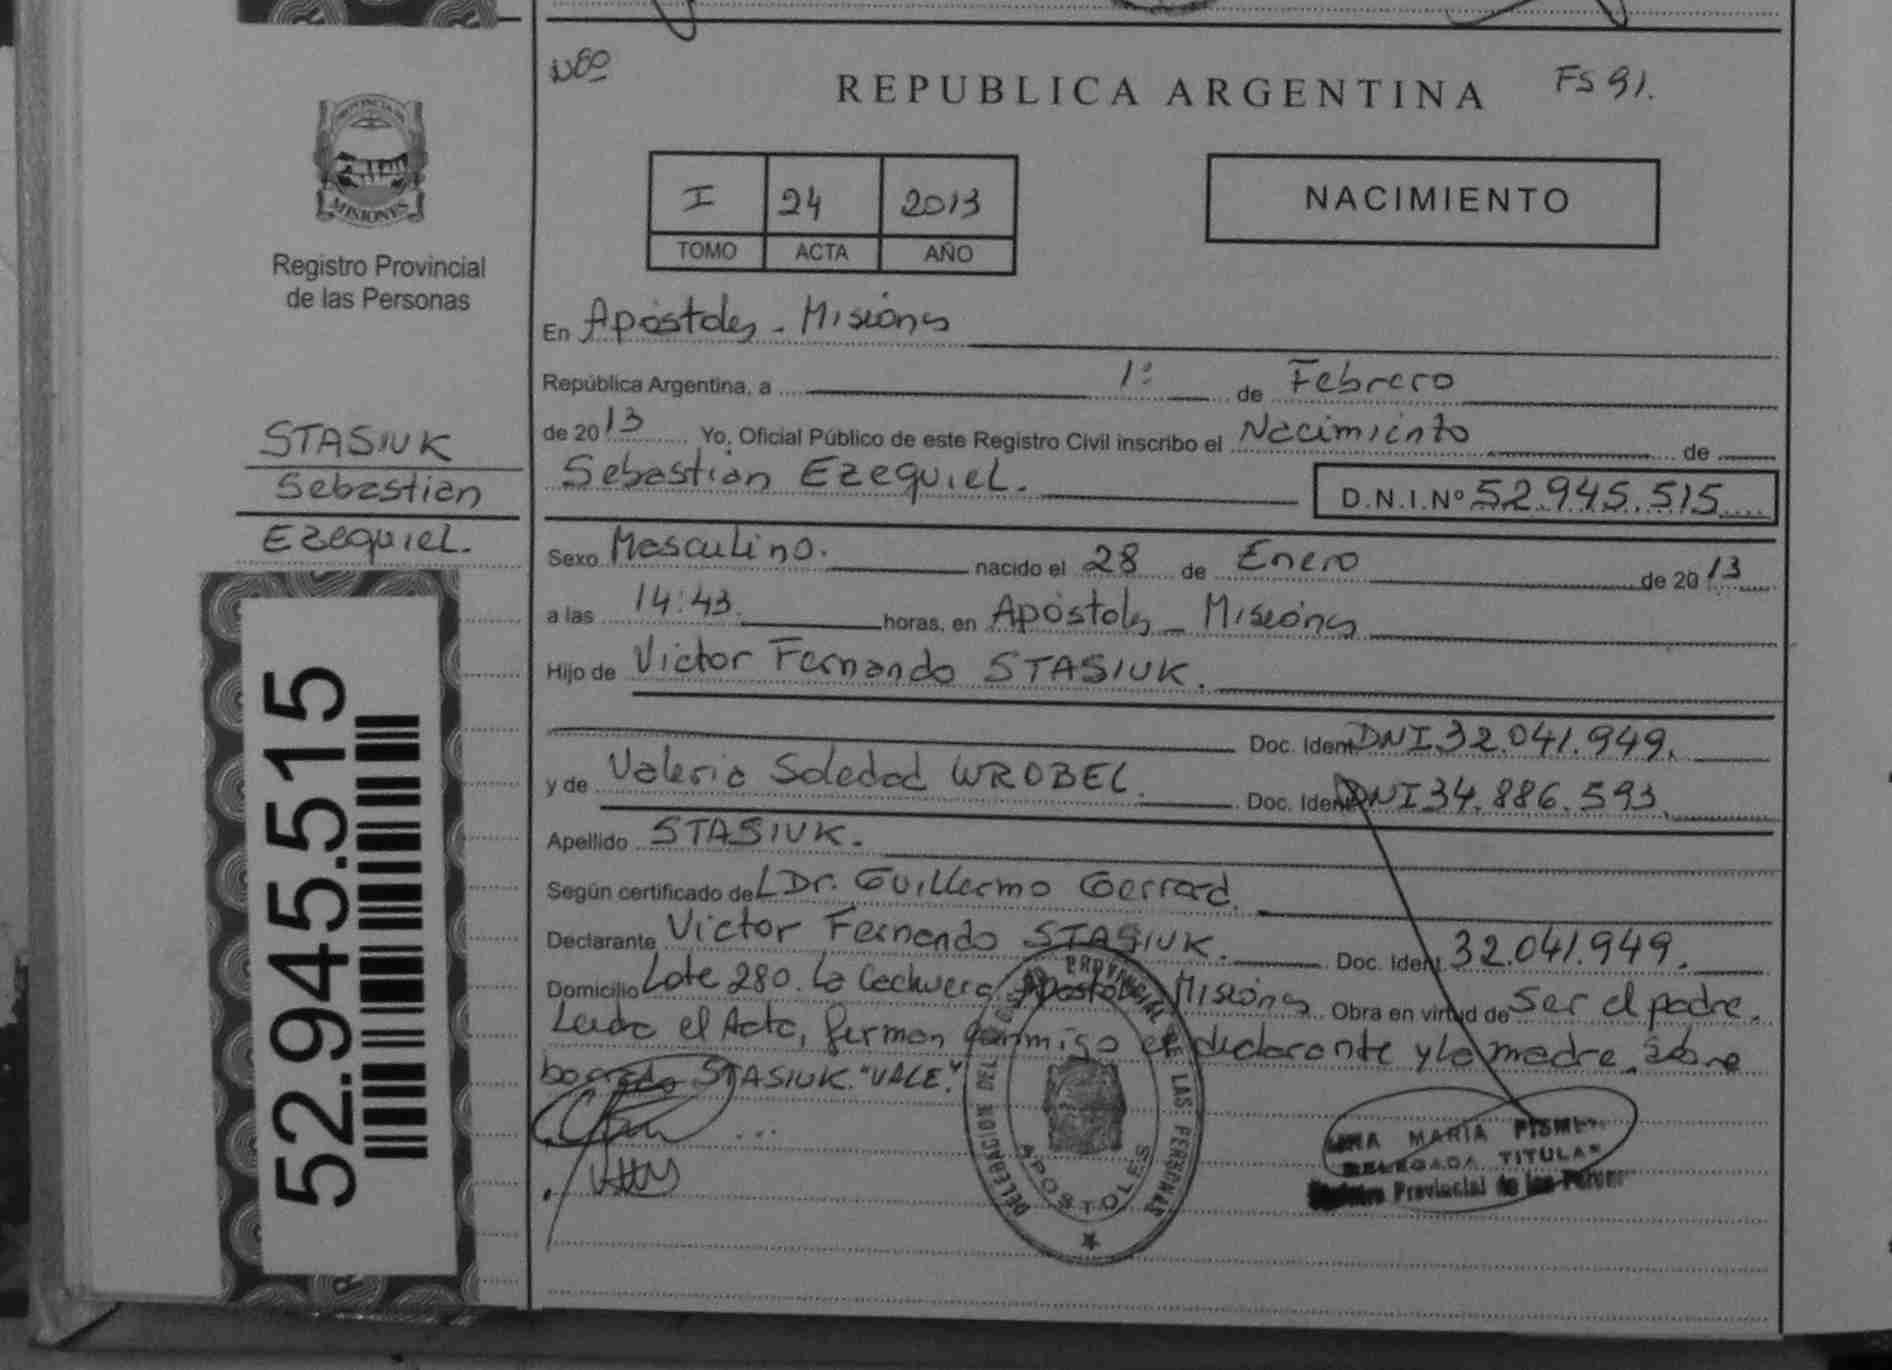 Nºº
REPUBLICA ARGENTINA
FS 91.
I 24 2013
TOMO ACTA AÑO
NACIMIENTO
PROVINCIA DE
MISIONES
Registro Provincial
de las Personas
STASIUK
Sebastian
Ezequiel.
52.945.515
En Apóstoles - Misiones
República Argentina, a 1º de Febrero
de 2013 Yo, Oficial Público de este Registro Civil inscribo el Nacimiento de
Sebastián Ezequiel. D.N.I.Nº 52.945.515
Sexo Masculino. nacido el 28 de Enero de 2013
a las 14:43. horas, en Apóstoles - Misiones
Hijo de Victor Fernando STASIUK.
Doc. Ident. DNI 32.041.949.
y de Valeria Soledad WROBEL. Doc. Ident. DNI 34.886.593
Apellido STASIUK.
Según certificado del Dr. Guillermo Gerrard.
Declarante Victor Fernando STASIUK. Doc. Ident. 32.041.949.
Domicilio Lote 280. La Cachuera, Apóstoles Misiones Obra en virtud de Ser el padre.
Leída el Acta, firman conmigo el declarante y la madre. sobre
borrado STASIUK. "VALE".
DELEGACION DEL REGISTRO PROVINCIAL DE LAS PERSONAS
APOSTOLES
MARIA
DELEGADA TITULAR
Registro Provincial de las Person